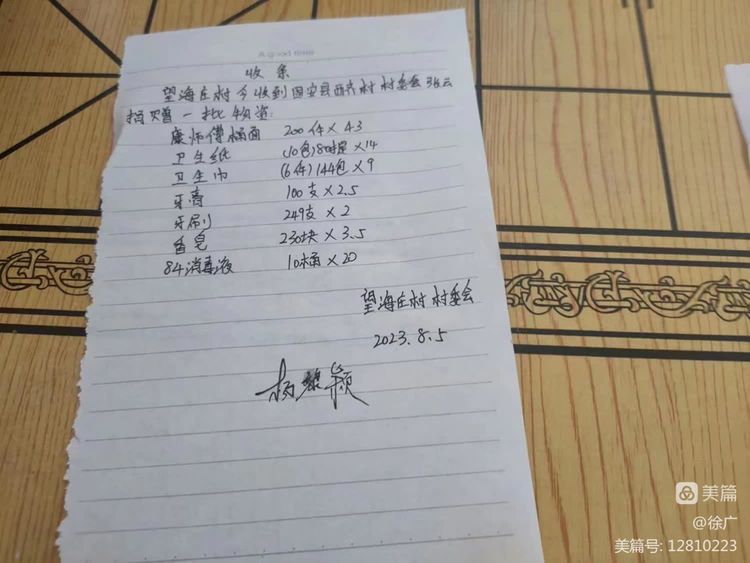 A good time
收条
望海庄村今收到固安县西齐村村委会张云
捐赠一批物资:
康师傅桶面 200件×43
卫生纸 (10包)80提×14
卫生巾 (6件)144包×9
牙膏 100支×2.5
牙刷 249支×2
香皂 230块×3.5
84消毒液 10桶×20
望海庄村村委会
2023.8.5
杨 颖
美篇
@徐广
美篇号: 12810223